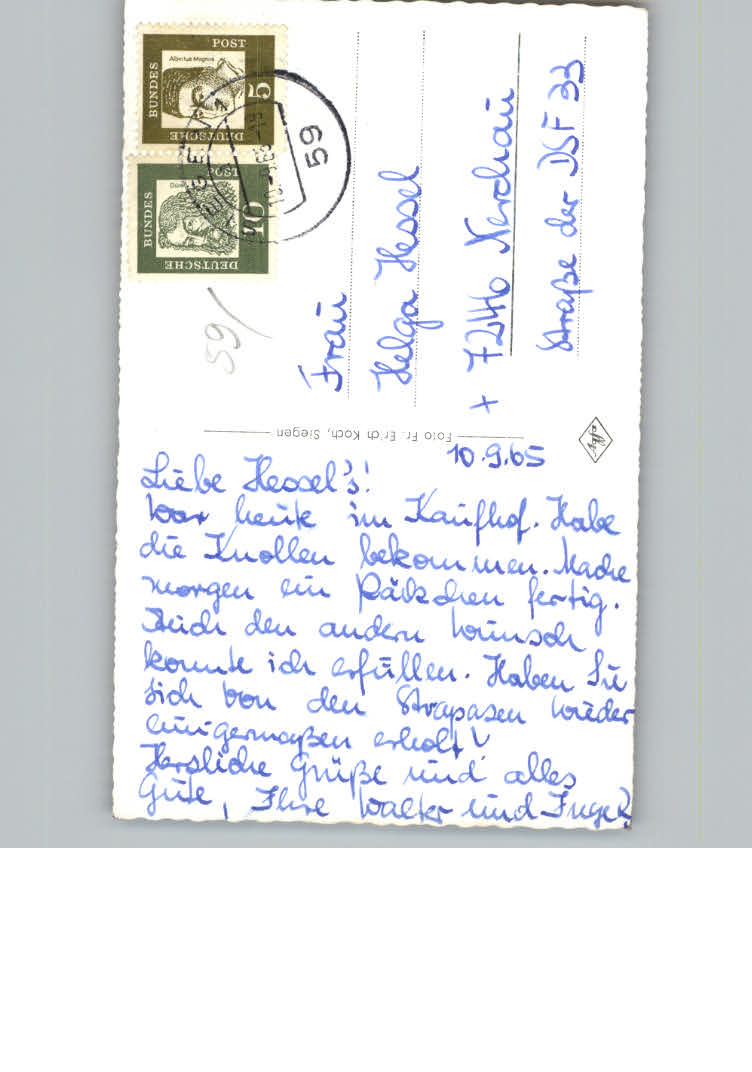 10.9.65
Liebe Hessel's!
War heute im Kaufhof. Habe
die Knollen bekommen. Mache
morgen ein Päckchen fertig.
Auch den andern Wunsch
konnte ich erfüllen. Haben Sie
sich von den Strapasen wieder
einigermaßen erholt?
Herzliche Grüße und alles
Gute, Ihre Walter und Inge
Frau
Helga Hessel
+ 7246 Nerchau
Straße der DSF 33
59/
Foto Fr. Erich Koch, Siegen
Agfa
DEUTSCHE
BUNDES
POST
Albertus Magnus
5
DEUTSCHE
BUNDES
POST
10
59